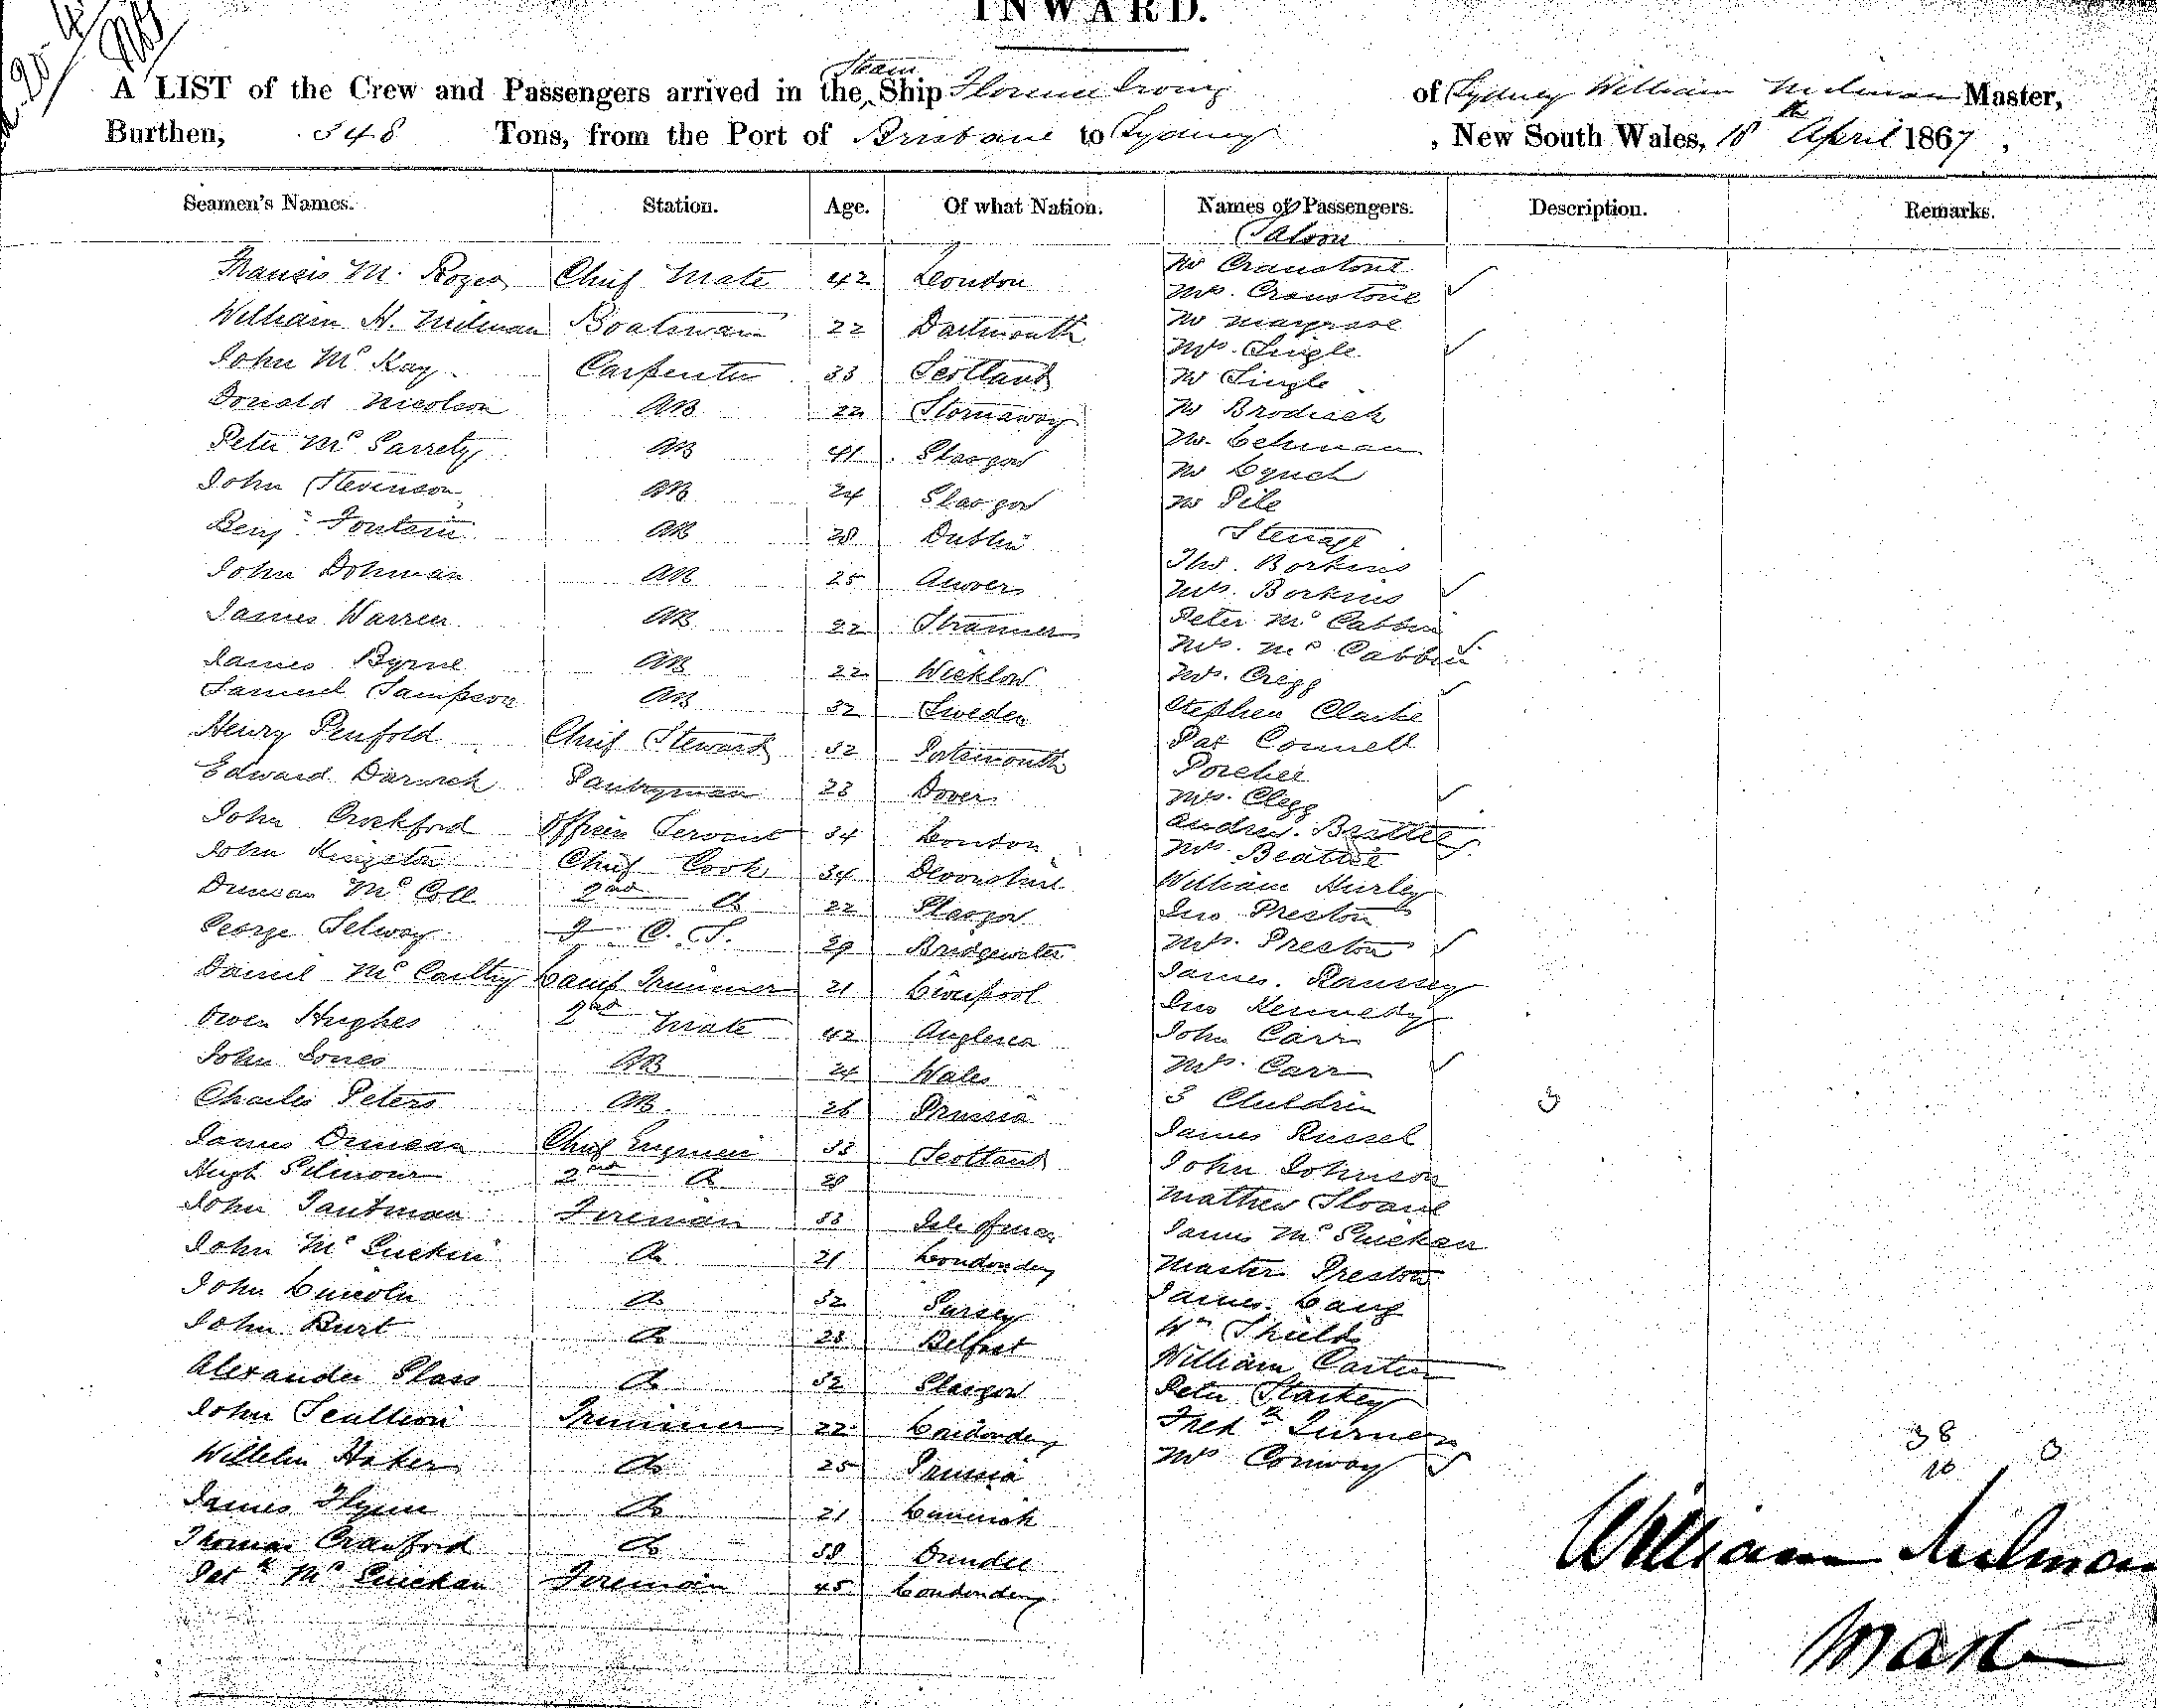 INWARD.
A LIST of the Crew and Passengers arrived in the Steam Ship Florence Irving of Sydney William Milman Master,
Burthen, 348 Tons, from the Port of Brisbane to Sydney, New South Wales, 18th April 1867,
Seamen's Names. Station. Age. Of what Nation. Names of Passengers. Description. Remarks.
Saloon
Francis M. Chief Mate 42 London Mr Cranstone
Mrs. Cranstone
William H. Milman Boatswain 22 Dartmouth Mr
Mrs. Single
John McKay Carpenter 33 Scotland Mr Single
Donald Nicolson AB 22 Stornaway Mr
Peter McGarrety AB 41 Glasgow Mr. Lehman
Mr Lynch
John Stevenson AB 24 Glasgow Mr Pile
Benjn Fontain AB 28 Dublin Steerage
John Dohman AB 25 Thos. Borkins
Mrs. Borkins
James Warren AB 22 Peter McCabbin
Mrs. McCabbin
James Byrne AB 22 Wicklow Mrs. Cregg
Samuel Sampson AB 32 Sweden Stephen Clarke
Henry Penfold Chief Steward 32 Portsmouth Pat Connell
Edward Pantryman 23 Dover
Mrs. Clegg
John Crockford Officers Servant 34 London Andrew Beattie
John Kingston Chief Cook 34 Devonshire Mrs Beattie
Duncan McColl 2nd Do 22 Glasgow William Hurley
Jno Preston
George Selway F. C. S. 29 Bridgewater Mrs. Preston
Daniel McCarthy Lamp Trimmer 21 Liverpool James Ramsey
Owen Hughes 2nd Mate 42 Anglesea Jno Kennedy
John Carr
John Jones AB 24 Wales Mrs. Carr
Charles Peters AB. 26 Prussia 3 Children 3
James Duncan Chief Engineer 33 Scotland James Russel
Hugh Gilmour 2nd Do 28 John Johnson
John Tautman Fireman 33 Isle of man Mathew Sloane
John McGuckin Do 21 Londonderry James McGuckan
Master Preston
John Lincoln Do 32 James Lang
John Burt Do 28 Belfast Wm Shields
Alexander Glass Do 32 Glasgow William Carter
Peter Starkey
John Scullion Trimmer 22 Londonderry Fredk Turner
Wilhelm Do 25 Prussia Mrs Conway
38 3
10
James Flynn Do 21 Limerick
Thomas Crawford Do 38 Dundee
Patk McGuckan Fireman 45 Londonderry
William Milman
Master